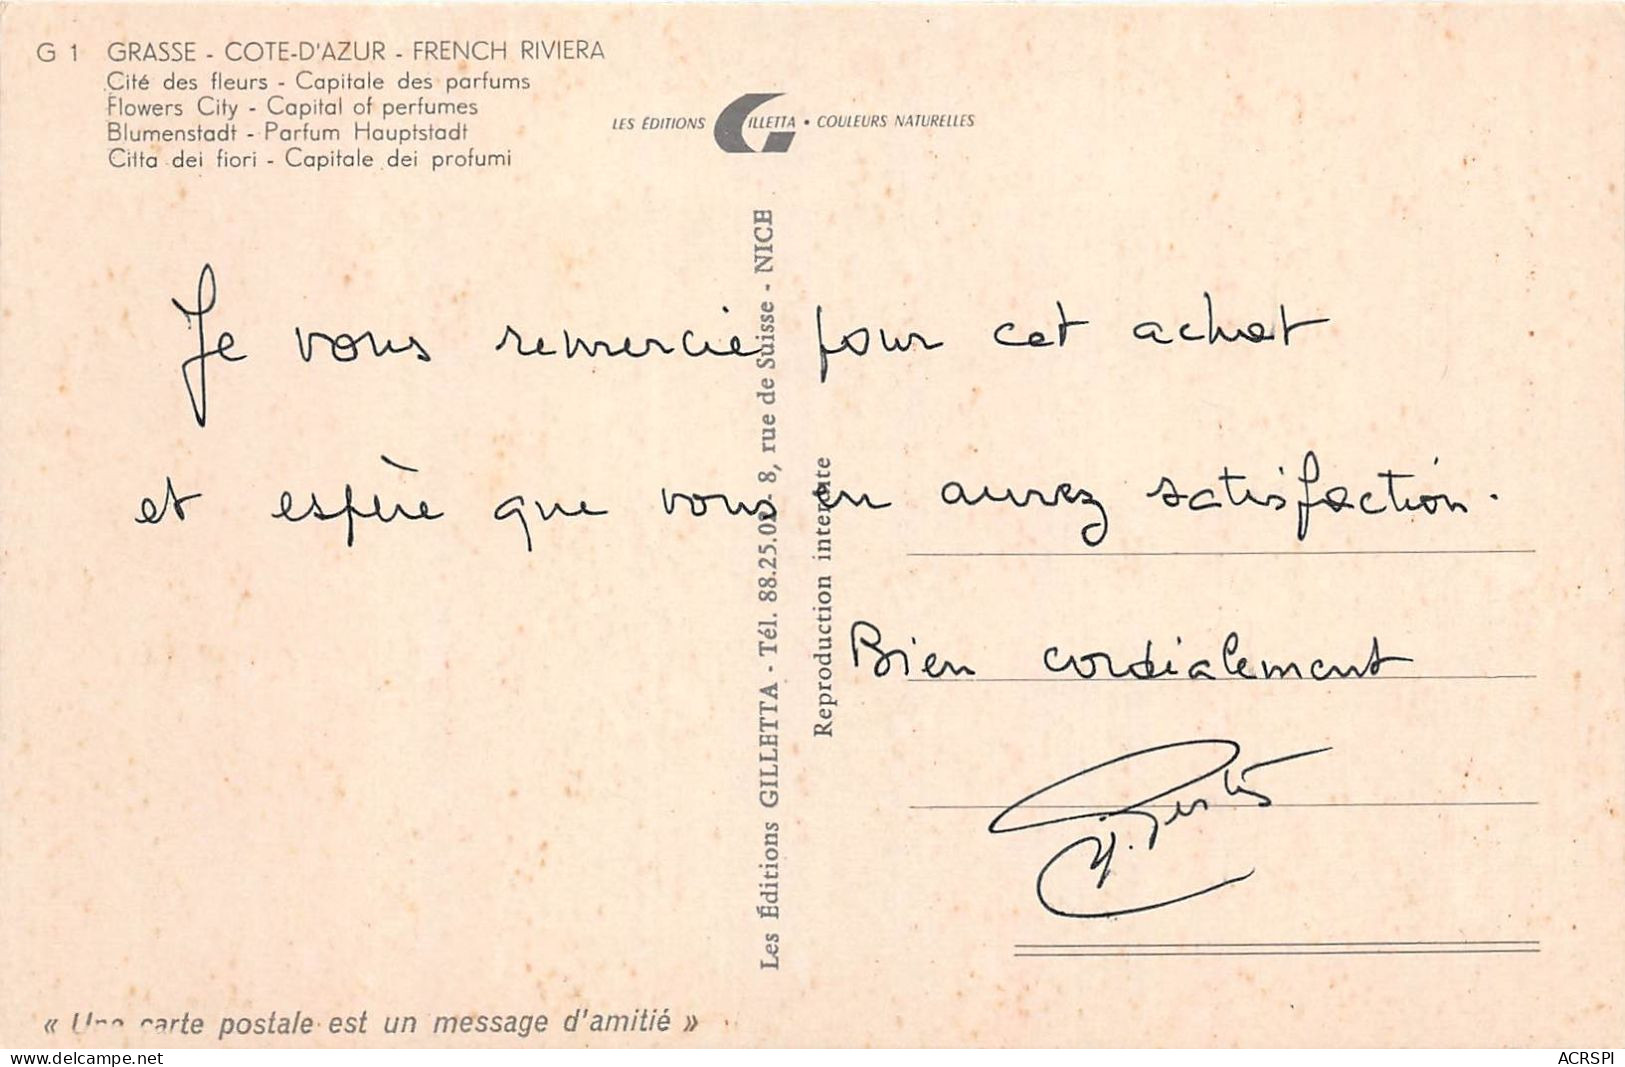 G 1 GRASSE - COTE-D'AZUR - FRENCH RIVIERA
Cité des fleurs - Capitale des parfums
Flowers City - Capital of perfumes
Blumenstadt - Parfum Hauptstadt
Citta dei fiori - Capitale dei profumi
LES ÉDITIONS GILLETTA • COULEURS NATURELLES
Je vous remercie pour cet achat
et espère que vous en aurez satisfaction.
Bien cordialement
Les Éditions GILLETTA - Tél. 88.25.0 - 8, rue de Suisse - NICE
Reproduction interdite
« Une carte postale est un message d'amitié »
delcampe.net
ACRSPI